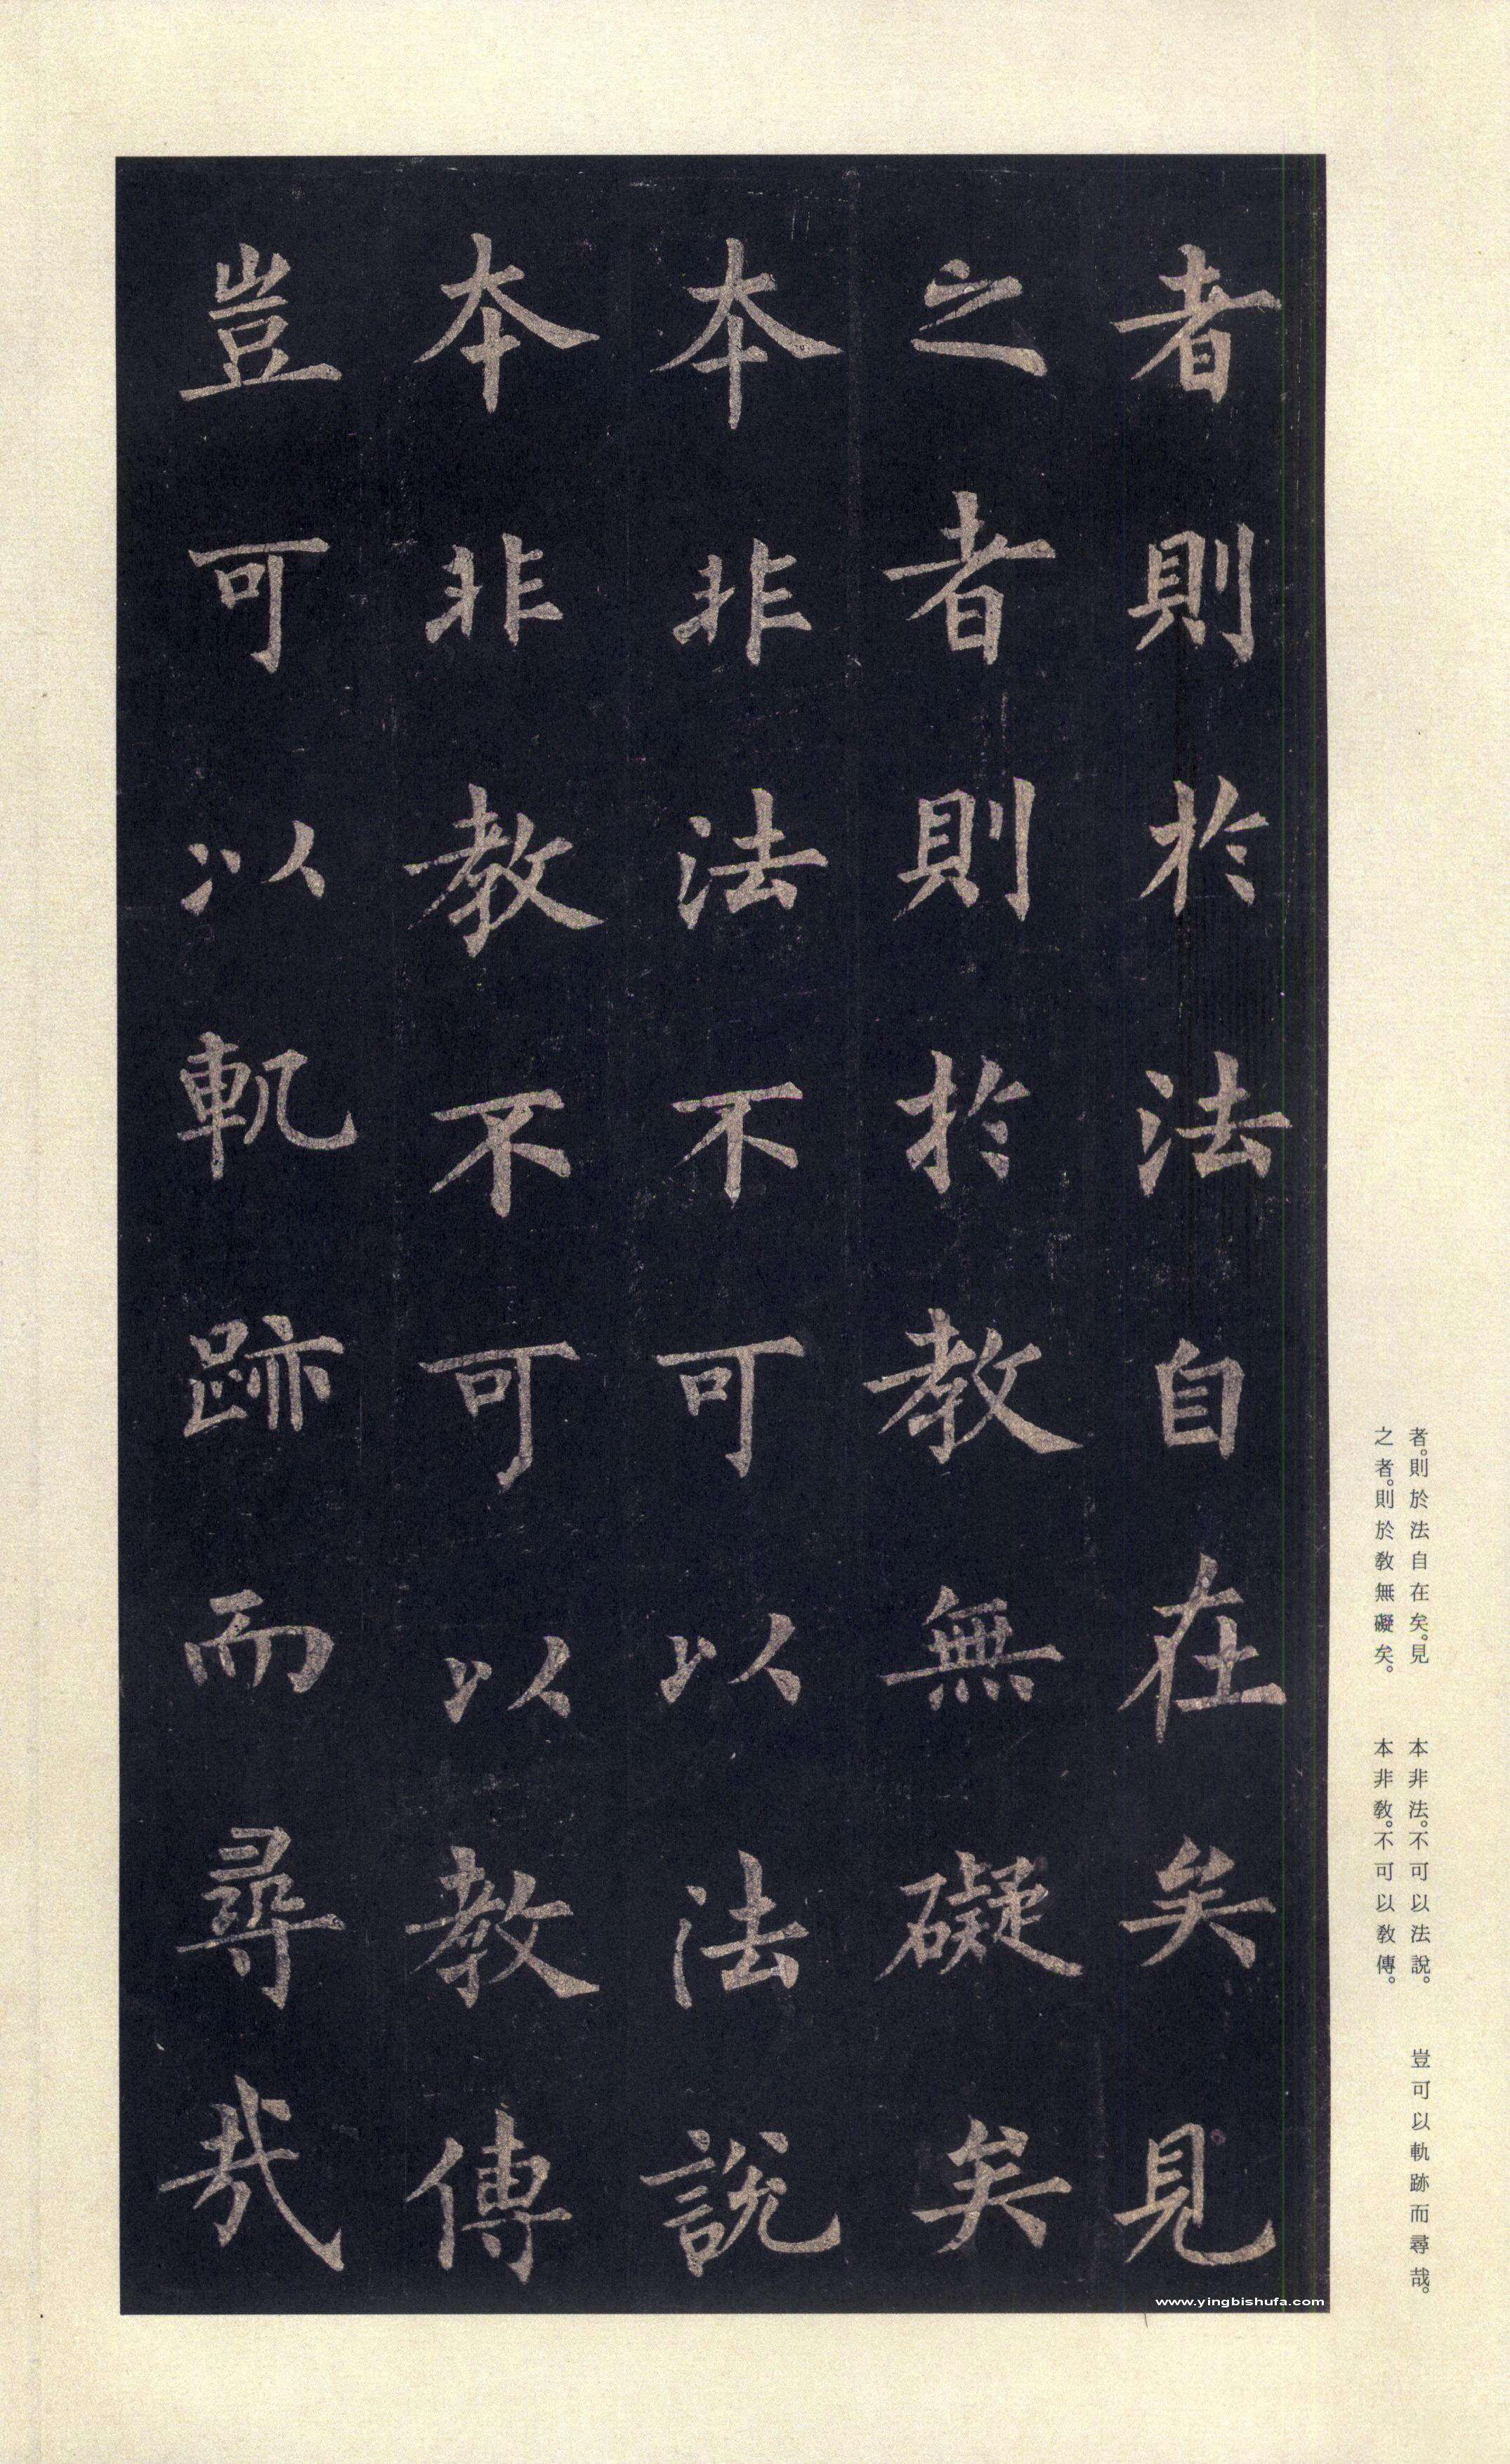 者則於法自在矣見
之者則於教無礙矣
本非法不可以法說
本非教不可以教傳
豈可以軌跡而尋哉
者。則於法自在矣。見
之者。則於教無礙矣。
本非法。不可以法說。
本非教。不可以教傳。
豈可以軌跡而尋哉。
www.yingbishufa.com